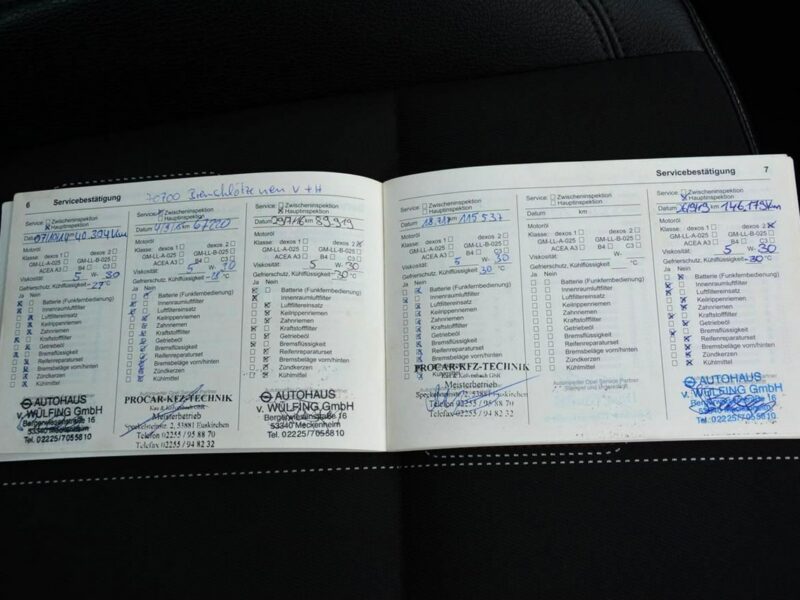 6
Servicebestätigung
70700 Bremsklötze neu V + H
Service:
Zwischeninspektion
Hauptinspektion
Datum 07/10/14 km 40.304 km
Motoröl
Klasse: dexos 1 dexos 2
GM-LL-A-025 GM-LL-B-025
ACEA A3 B4 C3
Viskosität: 5 W- 30
Gefrierschutz, Kühlflüssigkeit -27 °C
Ja Nein
Batterie (Funkfernbedienung)
Innenraumluftfilter
Luftfiltereinsatz
Keilrippenriemen
Zahnriemen
Kraftstofffilter
Getriebeöl
Bremsflüssigkeit
Reifenreparaturset
Bremsbeläge vorn/hinten
Zündkerzen
Kühlmittel
AUTOHAUS
v. WÜLFING GmbH
53340 Meckenheim
Tel. 02225/7055610
Service:
Zwischeninspektion
Hauptinspektion
Datum km 67220
Motoröl
Klasse: dexos 1 dexos 2
GM-LL-A-025 GM-LL-B-025
ACEA A3 B4 C3
Viskosität: 5 W- 30
Gefrierschutz, Kühlflüssigkeit °C
Ja Nein
Batterie (Funkfernbedienung)
Innenraumluftfilter
Luftfiltereinsatz
Keilrippenriemen
Zahnriemen
Kraftstofffilter
Getriebeöl
Bremsflüssigkeit
Reifenreparaturset
Bremsbeläge vorn/hinten
Zündkerzen
Kühlmittel
PROCAR-KFZ-TECHNIK
Meisterbetrieb
2, 53881 Euskirchen
Telefon 02255 / 95 88 70
Telefax 02255 / 94 82 32
Service:
Zwischeninspektion
Hauptinspektion
Datum 29/7/16 km 89.919
Motoröl
Klasse: dexos 1 dexos 2
GM-LL-A-025 GM-LL-B-025
ACEA A3 B4 C3
Viskosität: 5 W- 30
Gefrierschutz, Kühlflüssigkeit -30 °C
Ja Nein
Batterie (Funkfernbedienung)
Innenraumluftfilter
Luftfiltereinsatz
Keilrippenriemen
Zahnriemen
Kraftstofffilter
Getriebeöl
Bremsflüssigkeit
Reifenreparaturset
Bremsbeläge vorn/hinten
Zündkerzen
Kühlmittel
AUTOHAUS
v. WÜLFING GmbH
53340 Meckenheim
Tel. 02225/7055610
Servicebestätigung
7
Service:
Zwischeninspektion
Hauptinspektion
Datum km 115537
Motoröl
Klasse: dexos 1 dexos 2
GM-LL-A-025 GM-LL-B-025
ACEA A3 B4 C3
Viskosität: 5 W- 30
Gefrierschutz, Kühlflüssigkeit 30 °C
Ja Nein
Batterie (Funkfernbedienung)
Innenraumluftfilter
Luftfiltereinsatz
Keilrippenriemen
Zahnriemen
Kraftstofffilter
Getriebeöl
Bremsflüssigkeit
Reifenreparaturset
Bremsbeläge vorn/hinten
Zündkerzen
Kühlmittel
PROCAR-KFZ-TECHNIK
Meisterbetrieb
2, 53881 Euskirchen
Telefon 02255 / 95 88 70
Telefax 02255 / 94 82 32
Service:
Zwischeninspektion
Hauptinspektion
Datum km
Motoröl
Klasse: dexos 1 dexos 2
GM-LL-A-025 GM-LL-B-025
ACEA A3 B4 C3
Viskosität: W-
Gefrierschutz, Kühlflüssigkeit °C
Ja Nein
Batterie (Funkfernbedienung)
Innenraumluftfilter
Luftfiltereinsatz
Keilrippenriemen
Zahnriemen
Kraftstofffilter
Getriebeöl
Bremsflüssigkeit
Reifenreparaturset
Bremsbeläge vorn/hinten
Zündkerzen
Kühlmittel
Autorisierter Opel Service Partner
Service:
Zwischeninspektion
Hauptinspektion
Datum 146.179 km
Motoröl
Klasse: dexos 1 dexos 2
GM-LL-A-025 GM-LL-B-025
ACEA A3 B4 C3
Viskosität: 5 W- 30
Gefrierschutz, Kühlflüssigkeit -30 °C
Ja Nein
Batterie (Funkfernbedienung)
Innenraumluftfilter
Luftfiltereinsatz
Keilrippenriemen
Zahnriemen
Kraftstofffilter
Getriebeöl
Bremsflüssigkeit
Reifenreparaturset
Bremsbeläge vorn/hinten
Zündkerzen
Kühlmittel
AUTOHAUS
v. WÜLFING GmbH
Tel. 02225/7055610